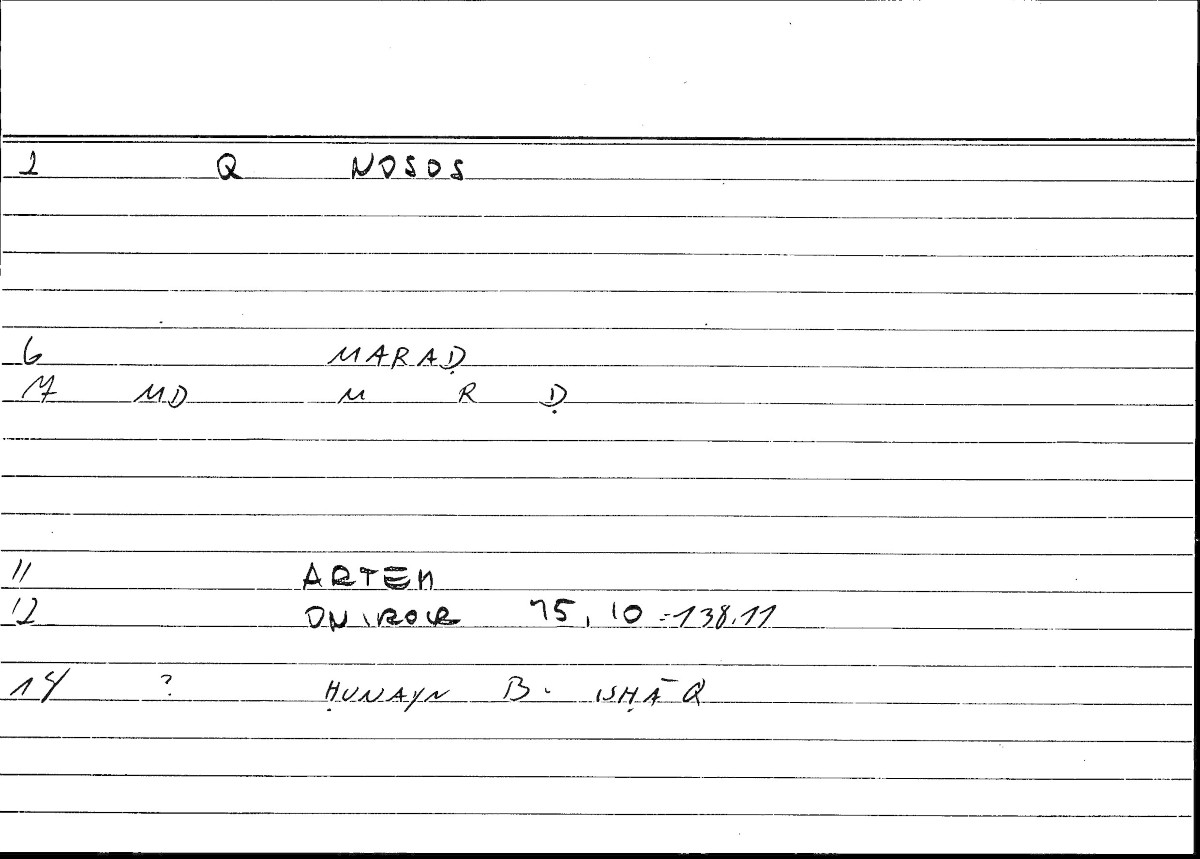 1 Q NOSOS
6 MARAḌ
7 MD M R Ḍ
11 ARTEM
12 ONIROCR 75, 10 = 138.11
14 ? ḤUNAYN B. ISḤĀQ